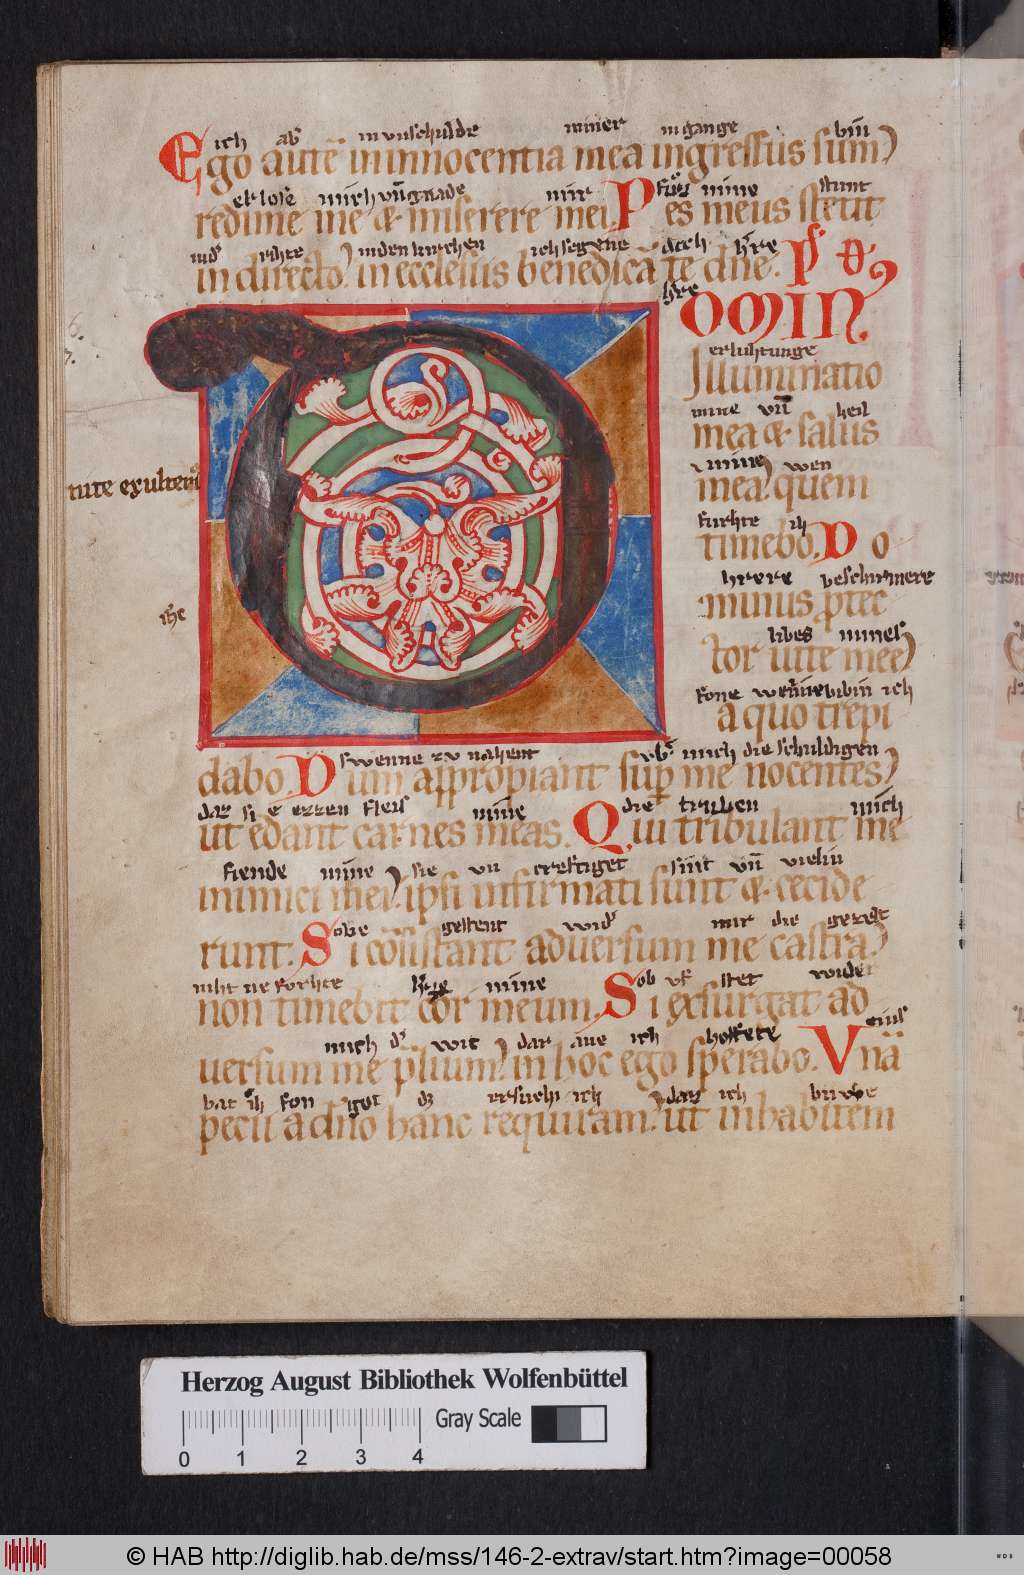 ich ab̾ in vnschulde miner in gange bin
Ego autē in innocentia mea ingressus sum
erlose mich vn̄ gnade mir fůz mine stunt
redime me & miserere mei. Pes meus stetit
rihte in den kirchen ich segene dich h̾re
in directo. in ecclesiis benedicā te dn̄e. Ps̾ Dd̾
h̾re
OMIN9
erluhtunge
Illuminatio
mine vn̄ heil
mea & salus
mine wen
mea. quem
furhte ih
timebo. Do
tute exultem̾
herre beschirmere
minus protec
ihc̄
libes mines
tor uite mee
fone ich
a quo trepi
swenne zv nahent vb̾ mich die schuldigen
dabo. Dum appropiant sup̱ me nocentes
daz si e ezzen fleis mine die truben mich
ut edant carnes meas. Qui tribulant me
fiende mine sie sint vn̄ vielin
inimici mei. ipsi infirmati sunt & cecide
gestent wid̾ mir die
runt. Si cōsistant adversum me castra.
niht ne forhte mine Sob stet wider
non timebit cor meum. Si exsurgat ad
mich wic dar ane ich hoffete eins
uersum me p̄lium. in hoc ego sperabo. Vnā
bat ih fon got dz ich daz ich buwe
pecii a dn̄o hanc requiram. ut inhabitem
Herzog August Bibliothek Wolfenbüttel
Gray Scale
0 1 2 3 4
© HAB http://diglib.hab.de/mss/146-2-extrav/start.htm?image=00058